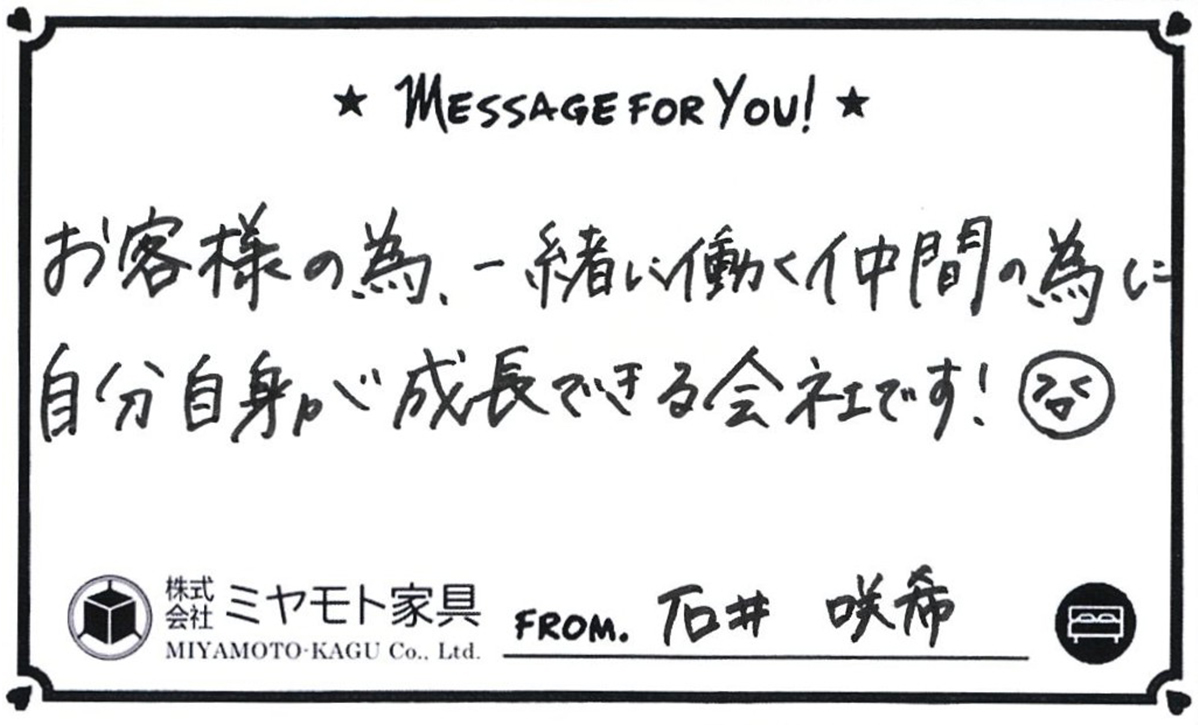 ★ MESSAGE FOR YOU! ★
お客様の為、一緒に働く仲間の為に
自分自身が成長できる会社です!
株式会社 ミヤモト家具
MIYAMOTO-KAGU Co., Ltd.
FROM. 石井 咲希